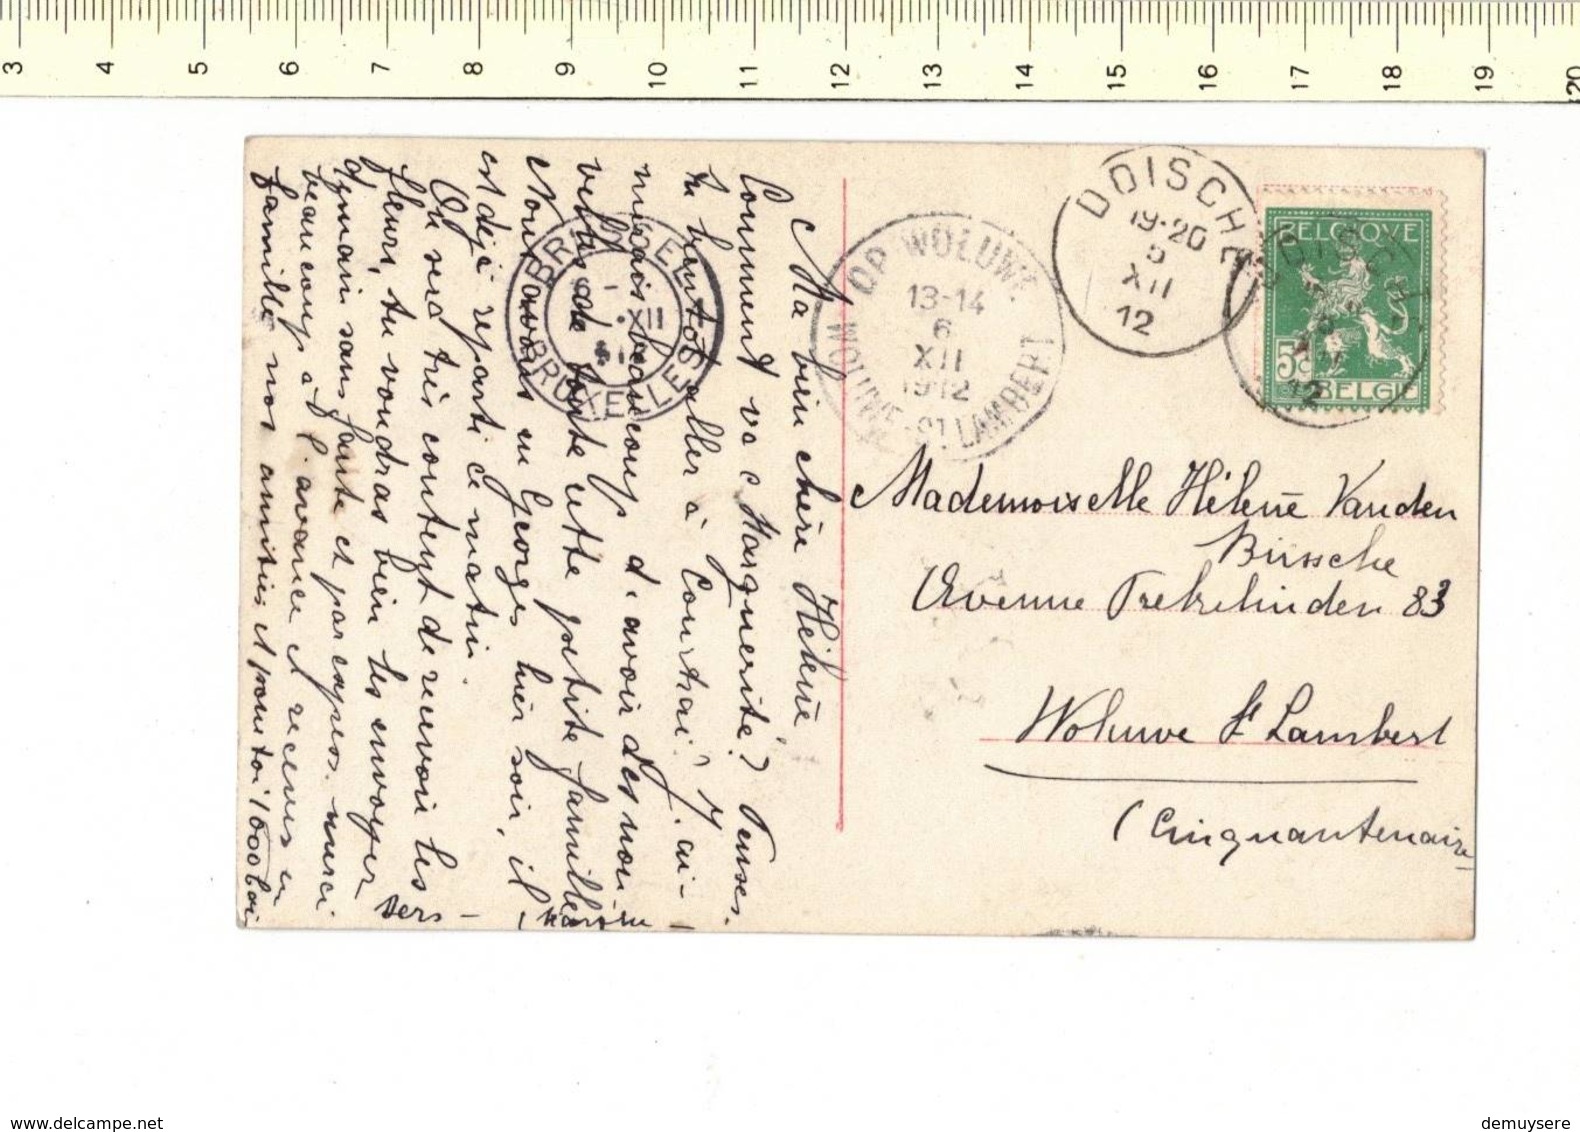 3 4 5 6 7 8 9 10 11 12 13 14 15 16 17 18 19 20
Ma bien chère Hélène
Comment va Marguerite? Penses-
tu bientôt aller à Courtrai? J'ai-
merais beaucoup d'avoir des nou-
velles de toute cette petite famille
Nous avons eu Georges hier soir, il
est déjà reparti ce matin.
On sera très content de recevoir les
fleurs, tu voudras bien les envoyer
demain sans faute et par express. merci
beaucoup à l'avance et recevez en
famille nos amitiés et pour toi 1000 bai
sers
BRUSSEL
XII
BRUXELLES
OP WOLUWE
13-14
6
XII
1912
WOLUWE-ST LAMBERT
DOISCHE
19-20
5
XII
12
DOISCHE
12
BELGIQUE
5c
BELGIË
Mademoiselle Hélène Vanden
Bussche
Avenue Prekelinden 83
Woluwe St Lambert
(Cinquantenaire
www.delcampe.net
demuysere